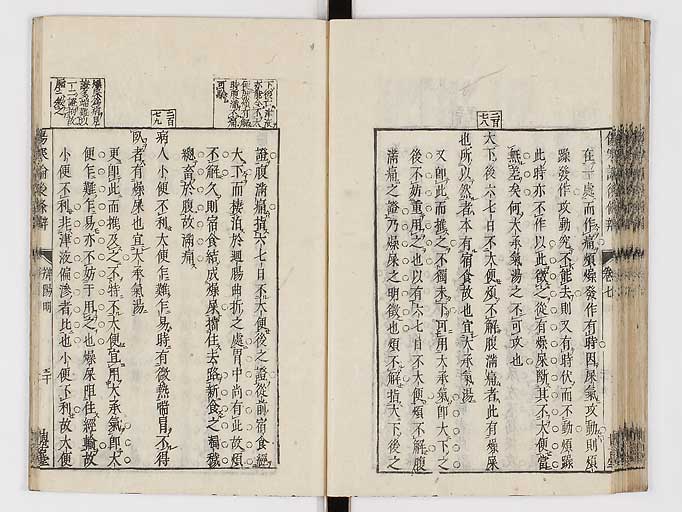 傷寒論後條辨
卷七
二百七八
在一處而作痛煩燥發作有時因屎氣攻動則煩
躁發作攻動究不能去則又有時伏而不動煩躁
此時亦不作以此徵之從有燥屎斷其不大便當
無差矣何大承氣湯之不可攻也
大下後六七日不大便煩不解腹滿痛者此有燥屎
也所以然者本有宿食故也宜大承氣湯
又卽此而推之不獨未下可用大承氣卽大下之
後亦不妨重用之也以有六七日不大便煩不解腹
滿痛之證乃燥屎之明徵也煩不解指大下後之
證腹滿痛指六七日不大便後之證從前宿食經
大下而棲泊於迴腸曲折之處胃中尚有此故煩
不解久則宿食結成燥屎擋住去路新食之穢
總畜於腹故滿痛
二百七九
病人小便不利大便乍難乍易時有微熱喘冒不得
臥者有燥屎也宜大承氣湯
更卽此而推及之不特不大便宜用大承氣卽大
便乍難乍易亦不妨于用之也燥屎阻住經輸故
小便不利非津液偏滲者比也小便不利故大便
傷寒論後條辨
辨陽明